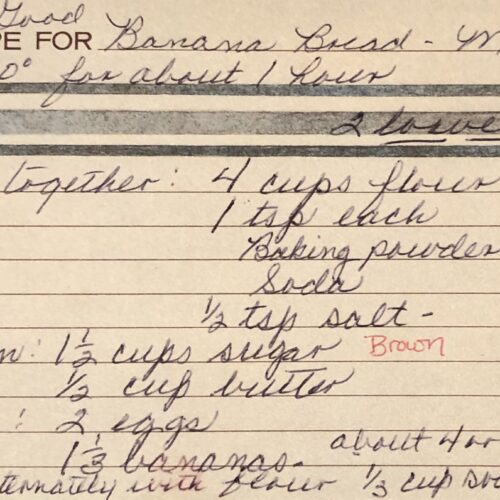 Good
PE FOR Banana Bread - M
0° for about 1 hour
2 loaves
together: 4 cups flour
1 tsp each
Baking powder
Soda
1/2 tsp salt -
1 1/2 cups sugar Brown
1/2 cup butter
: 2 eggs
1 1/3 bananas - about 4 or
ternately with flour 1/3 cup